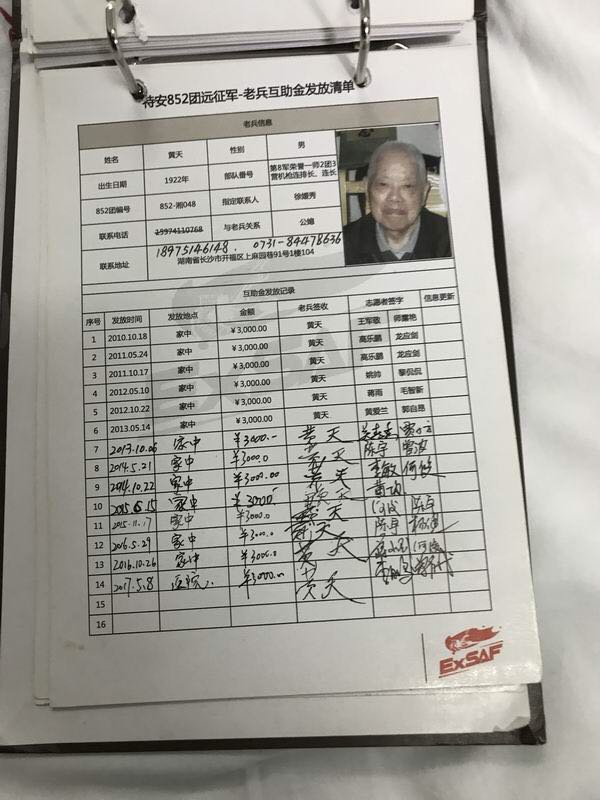 待安852团远征军-老兵互助金发放清单
老兵信息
姓名 黄天 性别 男
出生日期 1922年 部队番号 第8军荣誉一师2团3营机枪连排长、连长
852团编号 852-湘048 指定联系人 徐媛秀
联系电话 15974110768 与老兵关系 公媳
18975146148. 0731-84478636
联系地址 湖南省长沙市开福区上麻园巷91号1楼104
互助金发放记录
序号 发放时间 发放地点 金额 老兵签收 志愿者签字 信息更新
1 2010.10.18 家中 ¥3,000.00 黄天 王军敬
2 2011.05.24 家中 ¥3,000.00 黄天 高乐鹏 龙应剑
3 2011.10.17 家中 ¥3,000.00 黄天 高乐鹏 龙应剑
4 2012.05.10 家中 ¥3,000.00 黄天 姚帅 黎侃侃
5 2012.10.22 家中 ¥3,000.00 黄天 蒋雨 毛智新
6 2013.05.14 家中 ¥3,000.00 黄天 黄爱兰 郭自昂
7 2013.10.06 家中 ¥3000.- 黄天
8 2014.5.21 家中 ¥3000.0 黄天 陈宇 曾波
9 2014.10.22 家中 ¥3000.00 黄天 李敏
10 2015.6.15 家中 ¥3000 黄天
11 2015.11.17 家中 ¥3000.0 黄天
12 2016.5.29 家中 ¥3000.0 黄天 陈宇
13 2016.10.26 家中 ¥3000.0 黄天
14 2017.5.8 医院 ¥3000.00 黄天
15
16
ExSAF